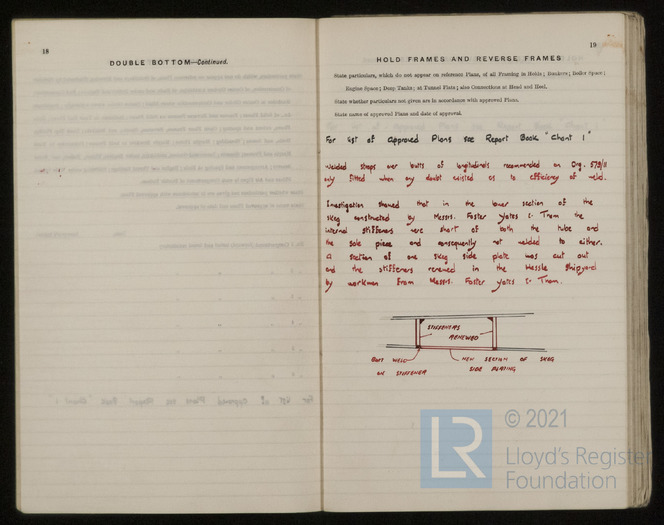 18
DOUBLE BOTTOM—Continued.
19
HOLD FRAMES AND REVERSE FRAMES
State particulars, which do not appear on reference Plans, of all Framing in Holds; Bunkers; Boiler Space;
Engine Space; Deep Tanks; at Tunnel Flats; also Connections at Head and Heel.
State whether particulars not given are in accordance with approved Plans.
State name of approved Plans and date of approval.
For list of Approved Plans see Report Book "Chant 1"
Welded straps over butts of longitudinals recommended on Drg. 579/11
only fitted when any doubt existed as to efficiency of weld.
Investigation showed that in the lower section of the
skeg constructed by Messrs. Foster Yates & Thom the
internal stiffeners were short of both the tube and
the sole piece and consequently not welded to either.
A section of one skeg side plate was cut out
and the stiffeners renewed in the Hessle Shipyard
by workmen from Messrs. Foster Yates & Thom.
STIFFENERS
RENEWED
BUTT WELD
ON STIFFENER
NEW SECTION OF SKEG
SIDE PLATING
© 2021
LR
Lloyd's Register
Foundation